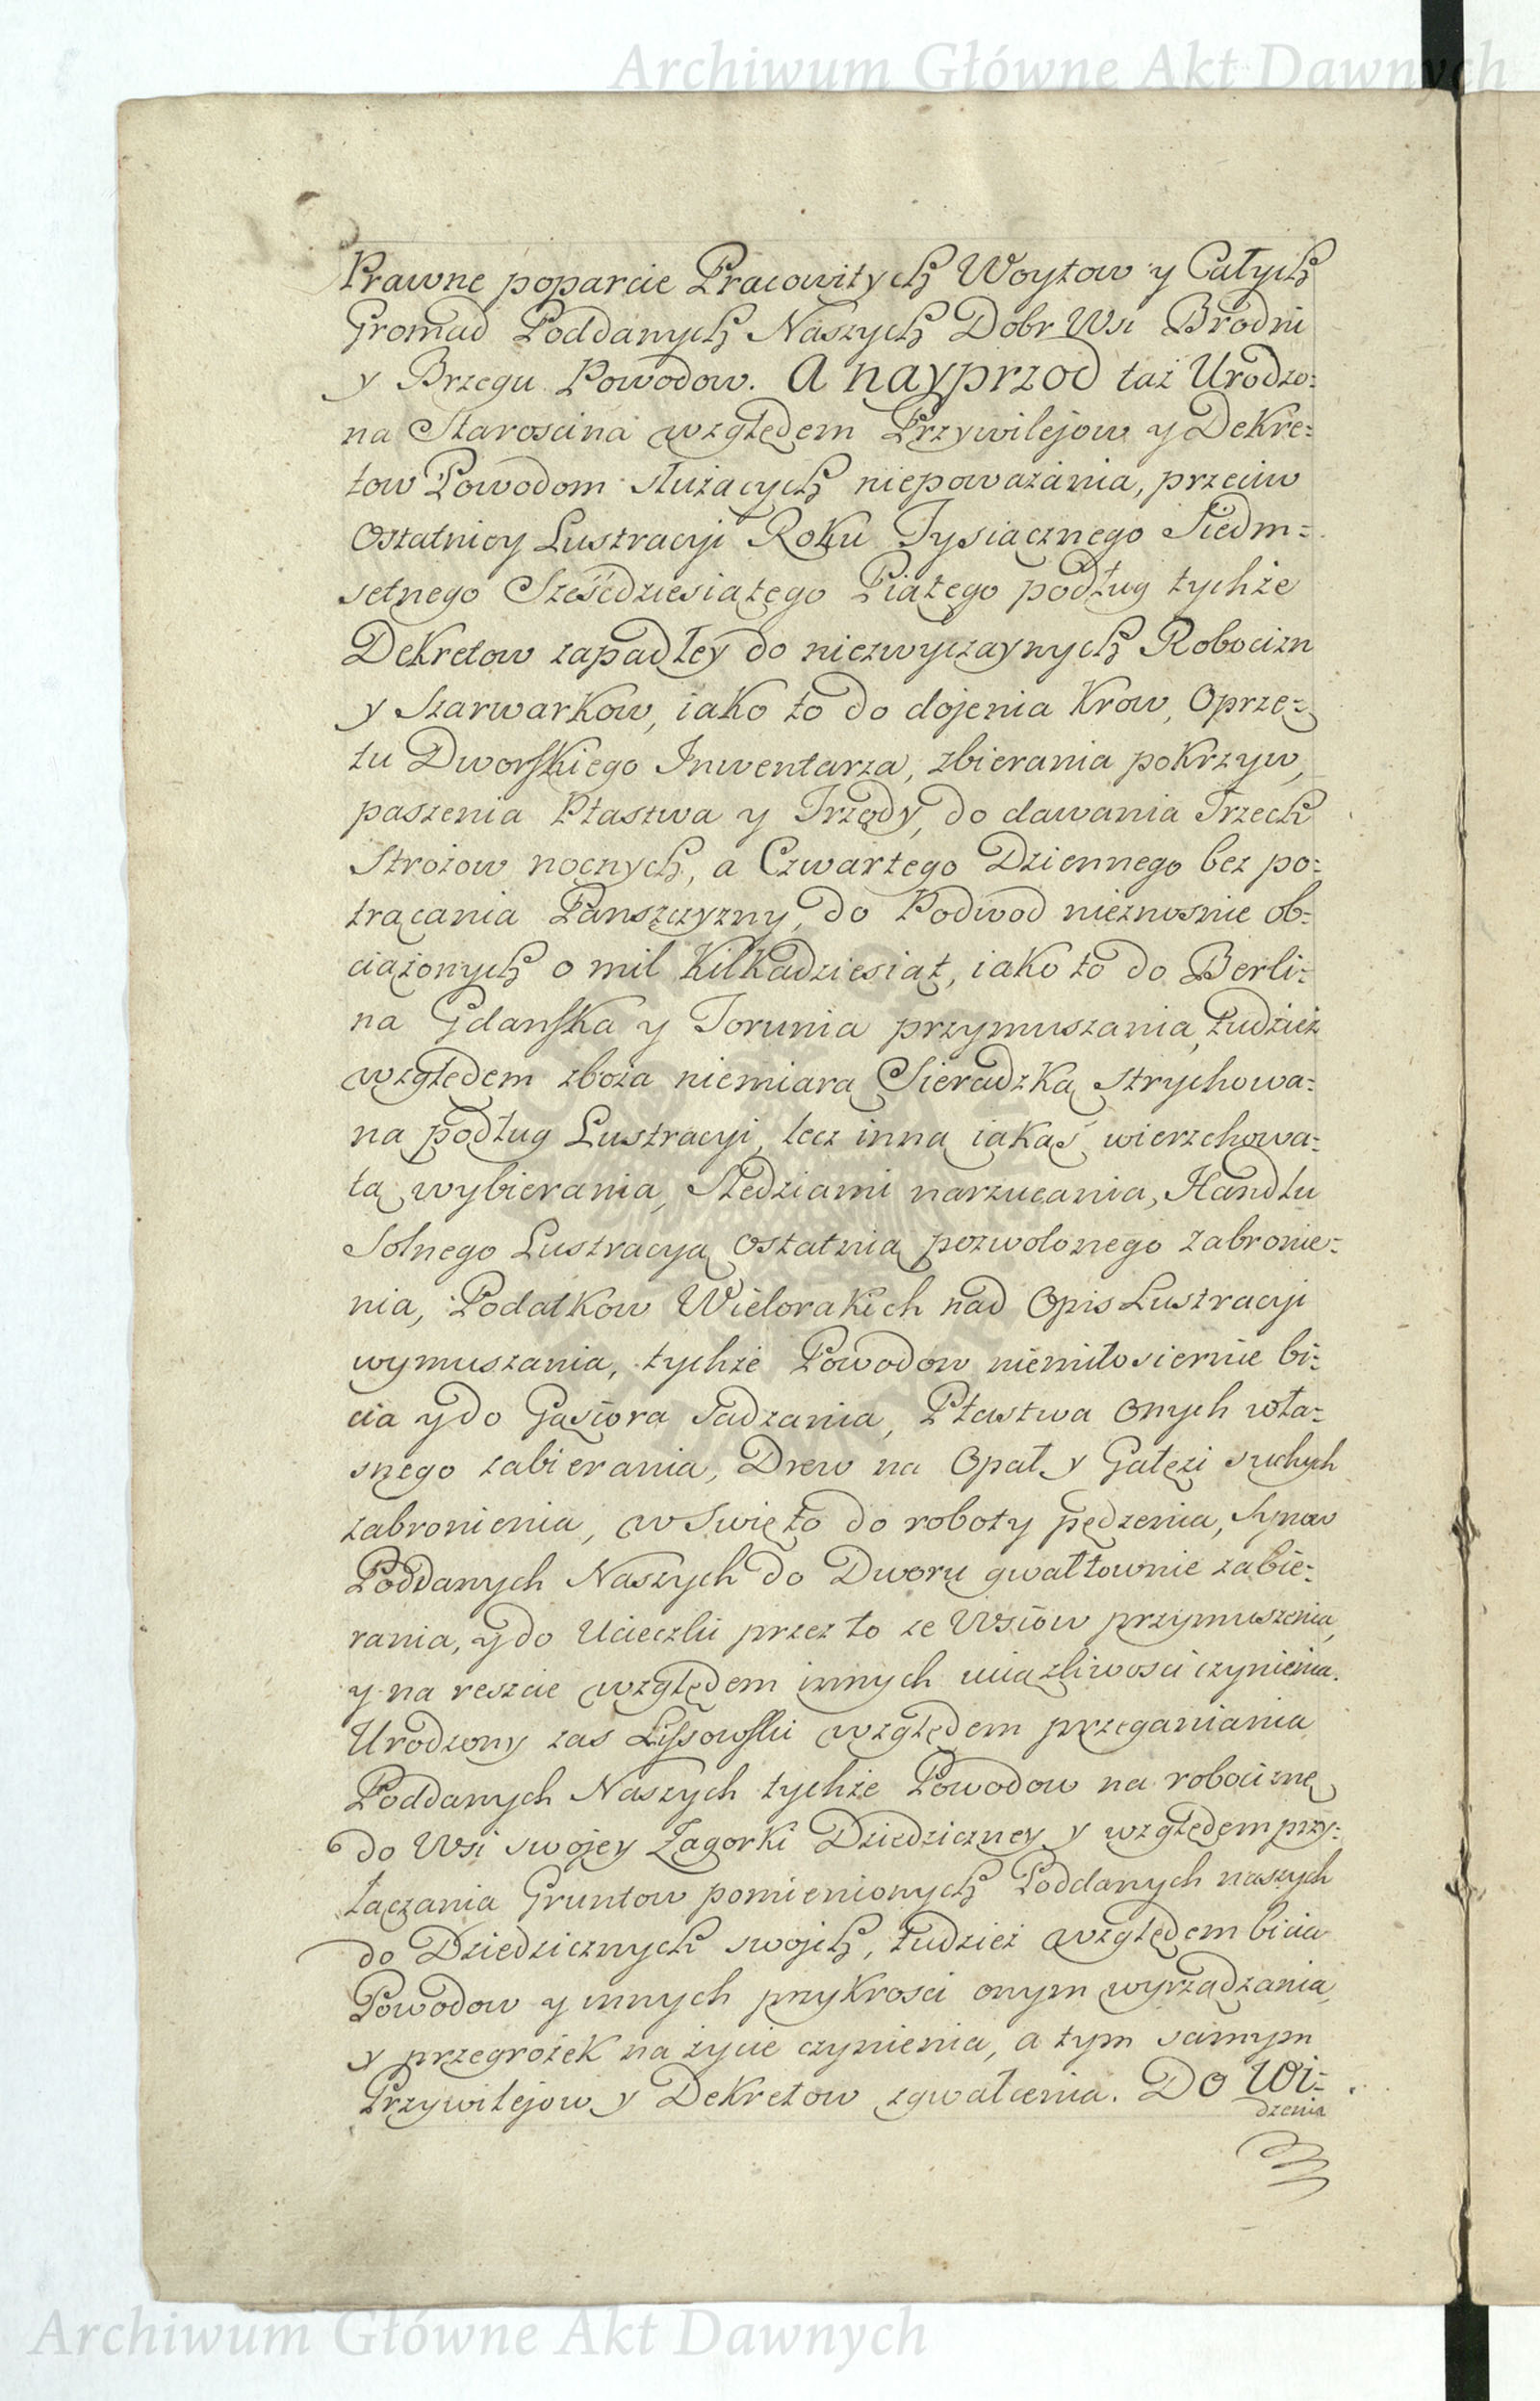 Archiwum Główne Akt Dawnych
Prawne poparcie Pracowitych Woytow y Całych
Gromad Poddanych Naszych Dobr Wsi Brodni
y Brzegu Powodow. A nayprzod taż Urodzo:
na Starościna względem Przywilejow y Dekre:
tow Powodom służących niepoważania, przeciw
Ostatniey Lustracyi Roku Tysiącznego Siedm:
setnego Sześćdziesiątego Piątego podług tychże
Dekretow zapadłey do niezwyczaynych Robocizn
y Szarwarkow, iako to do dojenia Krow, Oprzę:
tu Dworskiego Inwentarza, zbierania pokrzyw,
paszenia Ptastwa y Trzody, do dawania Trzech
Strożow nocnych, a Czwartego Dziennego bez po:
trącania Pańszczyzny, do Podwod nieznosnie ob:
ciążonych o mil Kilkadziesiąt, iako to do Berli:
na Gdańska y Torunia przymuszania, tudzież
względem zboża niemiarą Sieradzką strychowa:
ną podług Lustracyi, lecz inną iakąś wierzchowa:
tą wybierania, Sledziami narzucania, Handlu
Solnego Lustracyą ostatnią pozwolonego zabronie:
nia, Podatkow Wielorakich nad Opis Lustracyi
wymuszania, tychże Powodow niemiłosiernie bi:
cia y do Gąsiora sadzania, Ptastwa Onych wła:
snego zabierania, Drew na Opał y Gałęzi suchych
zabronienia, w Swięto do roboty pędzenia, Synow
Poddanych Naszych do Dworu gwałtownie zabie:
rania, y do Ucieczki przez to ze Wsiow przymuszenia,
y na reszcie względem innych uciążliwości czynienia.
Urodzony zas Lissowski względem przeganiania
Poddanych Naszych tychże Powodow na robociznę
do Wsi swojey Zagorki Dziedziczney y względem przy:
łączania Gruntow pomienionych Poddanych naszych
do Dziedzicznych swojch, tudzież względem bicia
Powodow y innych przykrości onym wyrządzania,
y przegrożek na życie czynienia, a tym samym
Przywilejow y Dekretow zgwałcenia. Do Wi:
dzenia
Archiwum Główne Akt Dawnych